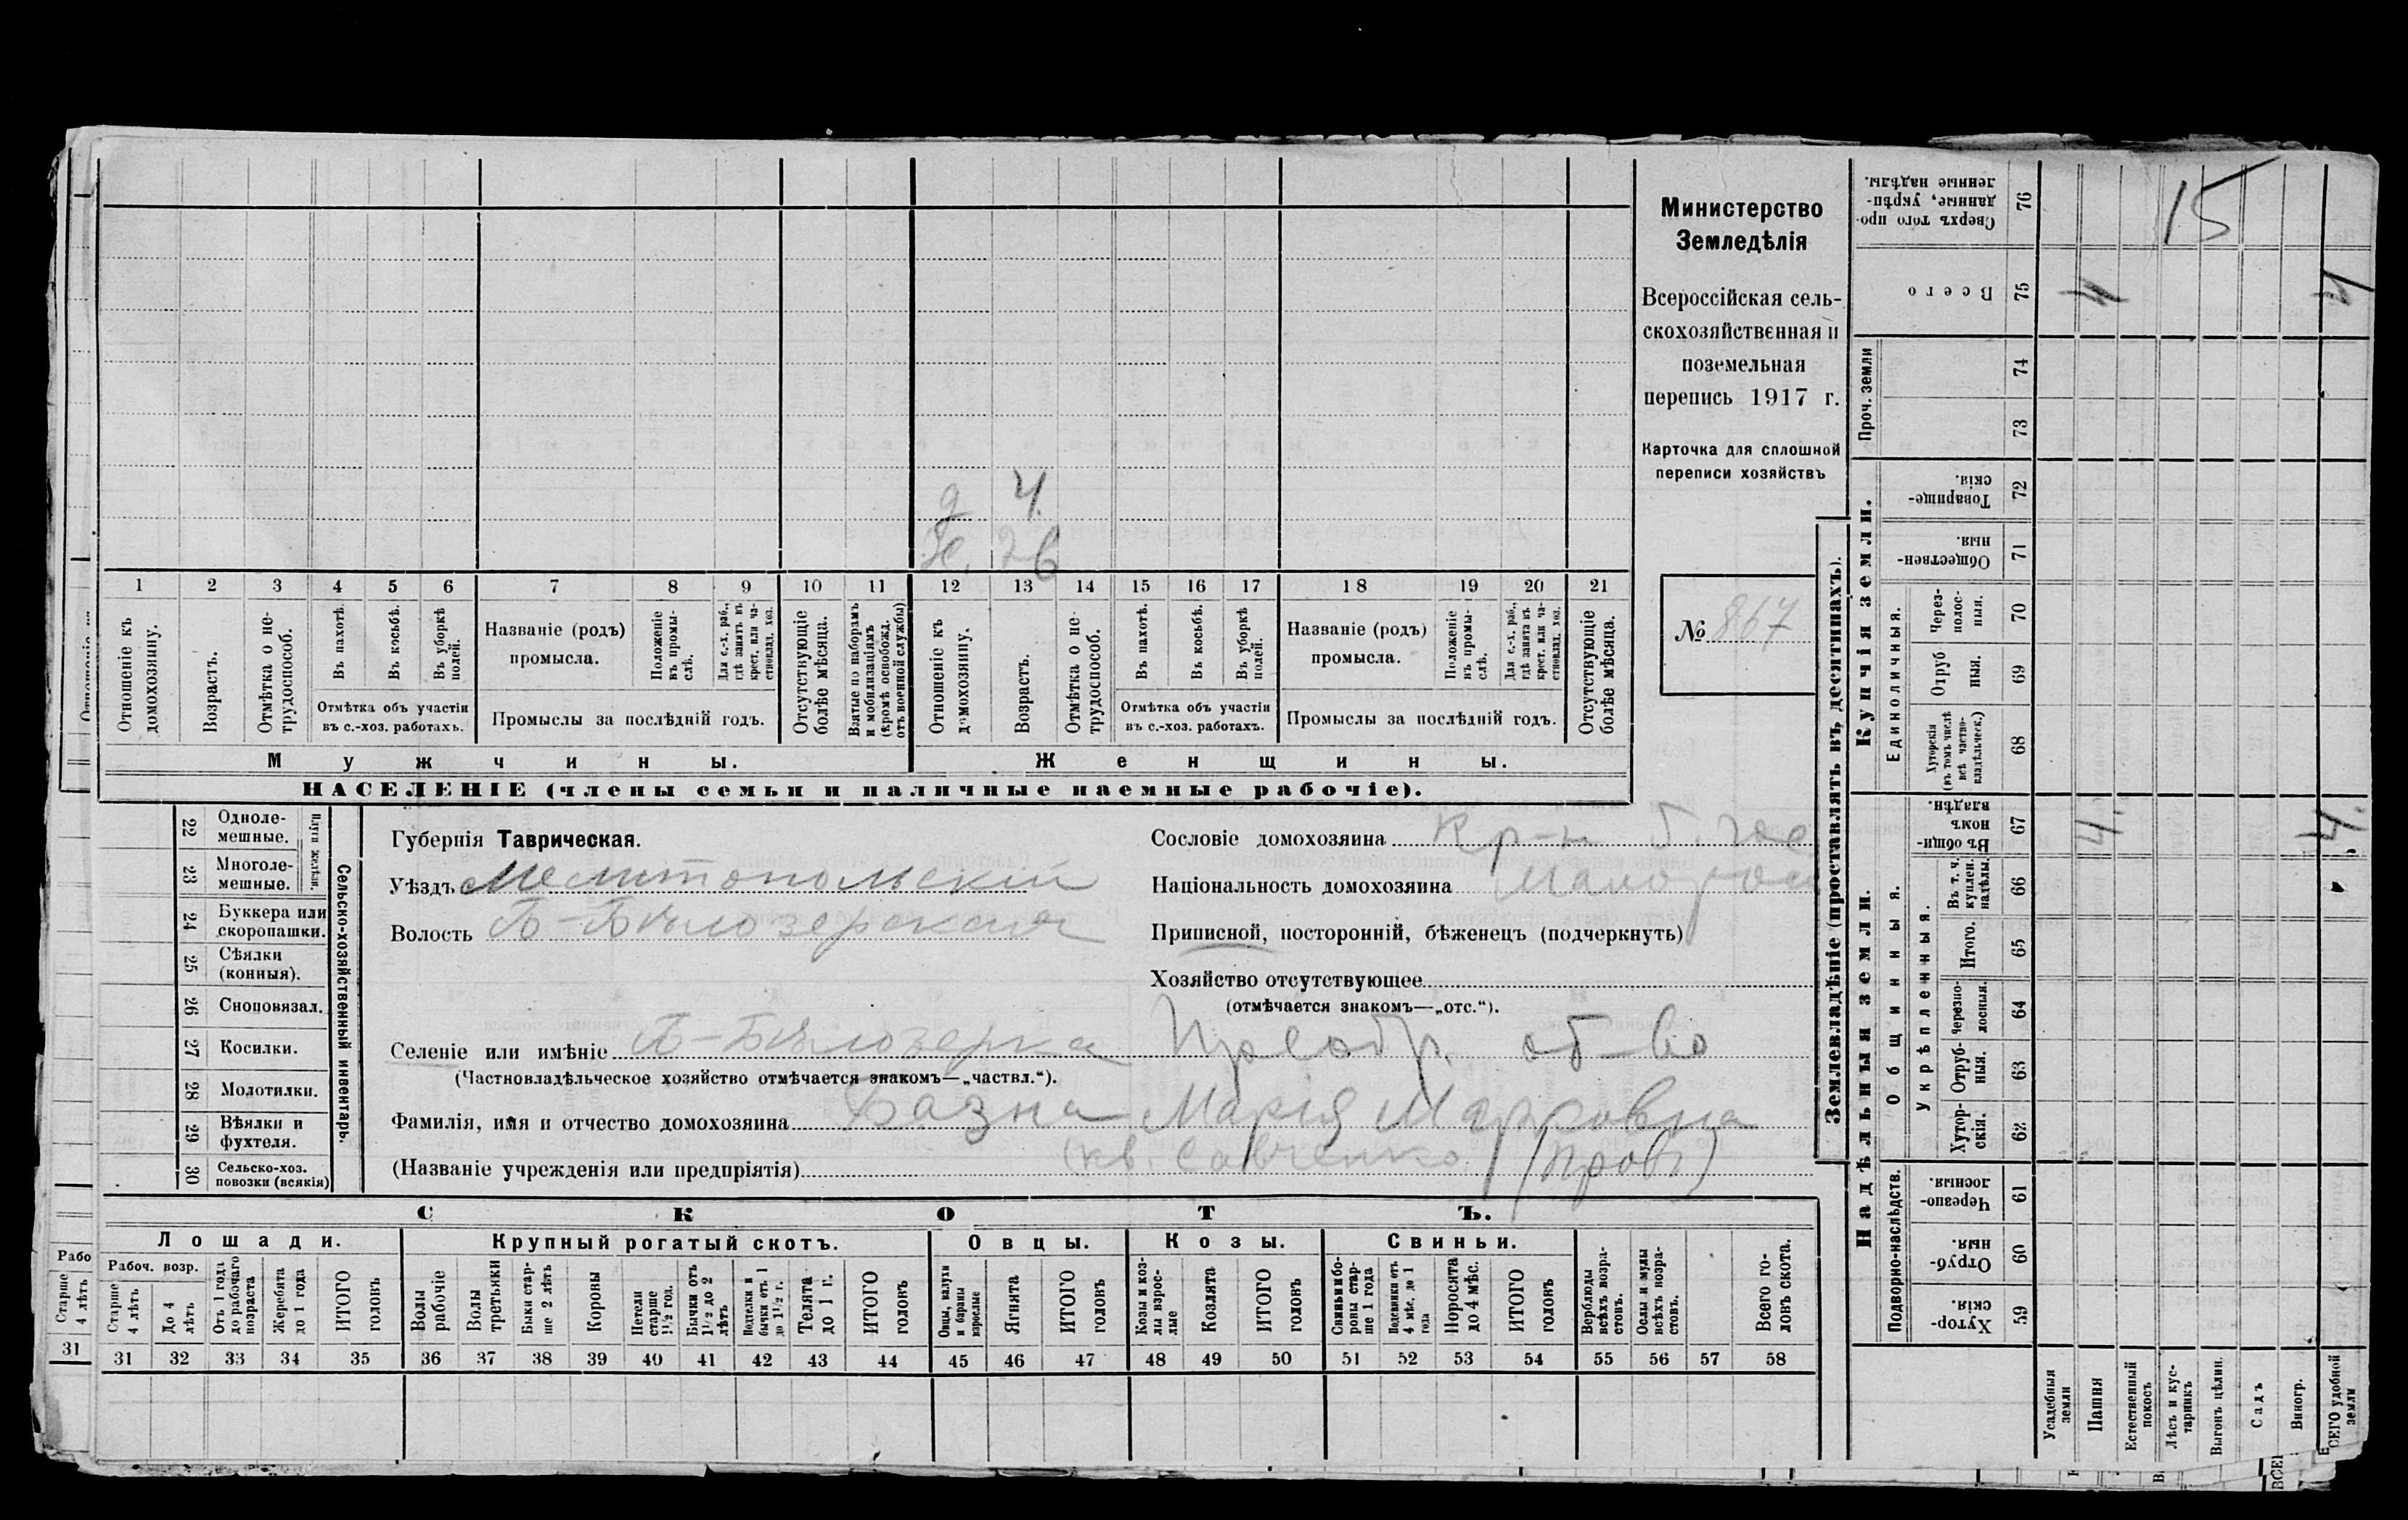 д 4.
Ж. 26
1 2 3 4 5 6 7 8 9 10 11 12 13 14 15 16 17 18 19 20 21
Отношеніе къ домохозяину.
Возрастъ.
Отмѣтка о не-трудоспособ.
Въ пахотѣ.
Въ косьбѣ.
Въ уборкѣ полей.
Отмѣтка объ участіи
въ с.-хоз. работахъ.
Названіе (родъ)
промысла.
Положеніе въ промы-слѣ.
Для с.-х. раб., гдѣ занятъ въ крест. или ча-стновлад. хоз.
Промыслы за послѣдній годъ.
Отсутствующіе болѣе мѣсяца.
Взятые по наборамъ и мобилизаціямъ (кромѣ освобожд. отъ военной службы)
Отношеніе къ домохозяину.
Возрастъ.
Отмѣтка о не-трудоспособ.
Въ пахотѣ.
Въ косьбѣ.
Въ уборкѣ полей.
Отмѣтка объ участіи
въ с.-хоз. работахъ.
Названіе (родъ)
промысла.
Положеніе въ промы-слѣ.
Для с.-х. раб., гдѣ занята въ крест. или ча-стновлад. хоз.
Промыслы за послѣдній годъ.
Отсутствующіе болѣе мѣсяца.
Мужчины.
Женщины.
НАСЕЛЕНІЕ (члены семьи и наличные наемные рабочіе).
Министерство
Земледѣлія
Всероссійская сель-
скохозяйственная и
поземельная
перепись 1917 г.
Карточка для сплошной
переписи хозяйствъ
№ 867
22 Одноле-мешные.
23 Многоле-мешные.
Плуги желѣзн.
24 Буккера или скоропашки.
25 Сѣялки (конныя).
26 Сноповязал.
27 Косилки.
28 Молотилки.
29 Вѣялки и фухтеля.
30 Сельско-хоз. повозки (всякія)
Сельско-хозяйственный инвентарь.
Губернія Таврическая.
Уѣздъ Мелитопольскій
Волость Б-Бѣлозерская
Сословіе домохозяина Кр-н
Національность домохозяина Малорос
Приписной, посторонній, бѣженецъ (подчеркнуть)
Хозяйство отсутствующее
(отмѣчается знакомъ—„отс.“).
Селеніе или имѣніе Б-Бѣлозерка Преобр. об-во
(Частновладѣльческое хозяйство отмѣчается знакомъ—„частвл.“).
Фамилія, имя и отчество домохозяина Базна Марія
(Названіе учрежденія или предпріятія) (кв. Савченко
СКОТЪ.
Лошади.
Крупный рогатый скотъ.
Овцы.
Козы.
Свиньи.
Рабоч. возр.
Старше 4 лѣтъ
До 4 лѣтъ
Отъ 1 года до рабочаго возраста
Жеребята до 1 года
ИТОГО головъ
Волы рабочіе
Волы третьяки
Быки стар-ше 2 лѣтъ
Коровы
Нетели старше 1½ год.
Бычки отъ 1½ до 2 лѣтъ
Подтелки и бычки отъ 1 до 1½ г.
Телята до 1 г.
ИТОГО головъ
Овцы, валухи и бараны взрослые
Ягнята
ИТОГО головъ
Козы и коз-лы взрос-лые
Козлята
ИТОГО головъ
Свиньи и бо-ровы стар-ше 1 года
Подсвинки отъ 4 мѣс. до 1 года
Поросята до 4 мѣс.
ИТОГО головъ
Верблюды всѣхъ возра-стовъ.
Ослы и мулы всѣхъ возра-стовъ.
Всего го-ловъ скота.
31 32 33 34 35 36 37 38 39 40 41 42 43 44 45 46 47 48 49 50 51 52 53 54 55 56 57 58
Рабо
Старше 4 лѣтъ
31
Землевладѣніе (проставлять въ десятинахъ).
Сверхъ того про-данные, укрѣп-ленные надѣлы. 76 15
Всего 75 4 4
Проч. земли
74
73
Купчія земли.
Товарище-скія. 72
Обществен-ныя. 71
Единоличныя.
Через-полос-ныя. 70
Отруб-ныя. 69
Хуторскія (въ томъ числѣ всѣ частно-владѣльческ.) 68
Надѣльныя земли.
Общинныя.
Въ общин-номъ владѣн. 67 4. 4.
Укрѣпленныя.
Въ т. ч. куплен. надѣлы. 66
Итого. 65
Черезпо-лосныя. 64
Отруб-ныя. 63
Хутор-скія. 62
Подворно-наслѣдств.
Черезпо-лосныя. 61
Отруб-ныя. 60
Хутор-скія. 59
Усадебныя земли
Пашня
Естественный покосъ
Лѣсъ и кус-тарникъ
Выгонъ цѣлин.
Садъ
Виногр.
ВСЕГО удобной земли